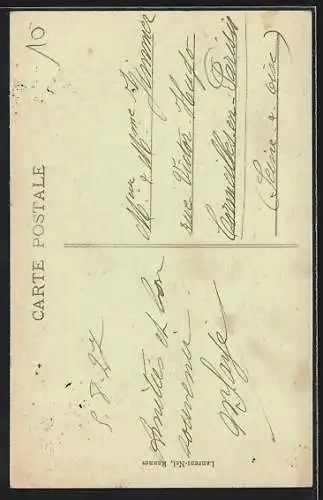 10
CARTE POSTALE
5. 8. 27
Amitiés et bon
souvenir
Laurent-Nel, Rennes
Mr & Mme
rue Victor Hugo
Cormeilles en Parisis
(Seine & Oise)